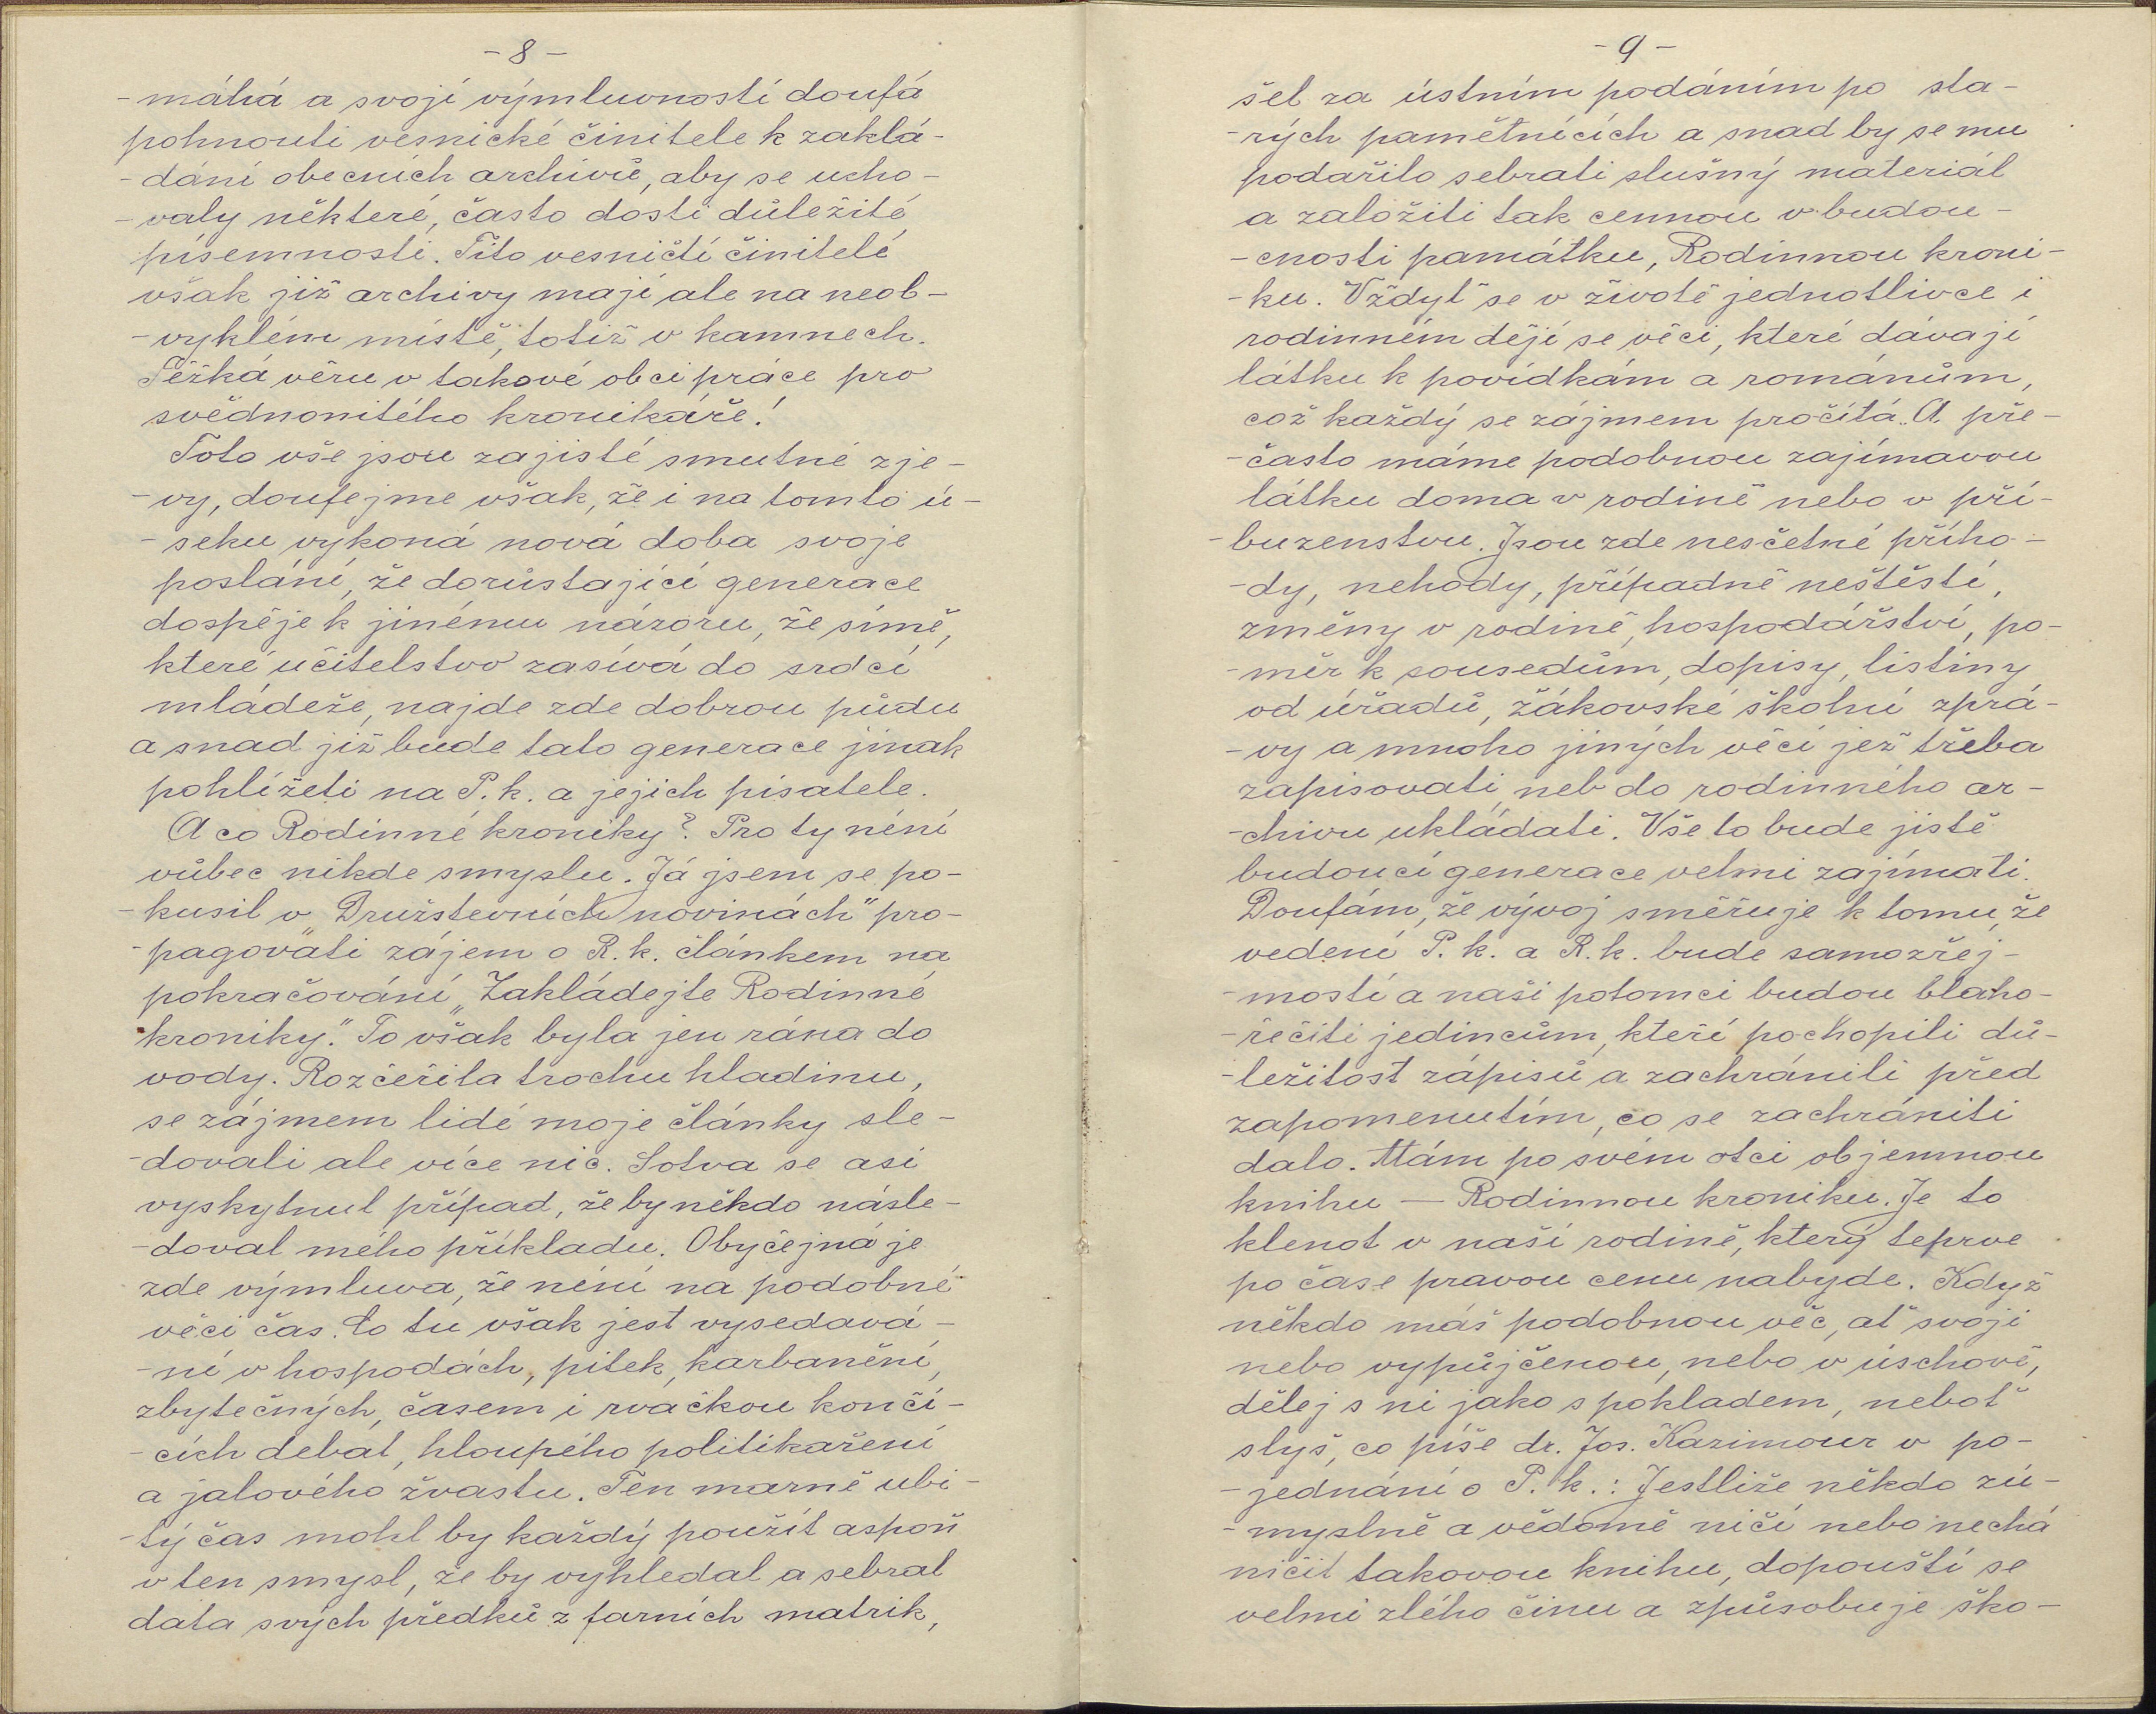 - 8 -
- máhá a svojí výmluvností doufá
pohnouti vesnické činitele k zaklá-
- dání obecních archivů, aby se ucho-
- valy některé, často dosti důležité
písemnosti. Tito vesničtí činitelé
však již archivy mají ale na neob-
- vyklém místě, totiž v kamnech.
Těžká věru v takové obci práce pro
svědnonitého kronikáře!
Toto vše jsou zajisté smutné zje-
- vy, doufejme však, že i na tomto ú-
- seku vykoná nová doba svoje
poslání, že dorůstající generace
dospěje k jinému názoru, že símě,
které učitelstvo zasívá do srdcí
mládeže, najde zde dobrou půdu
a snad již bude tato generace jinak
pohlížeti na P. k. a jejich pisatele.
A co Rodinné kroniky? Pro ty není
vůbec nikde smyslu. Já jsem se po-
- kusil v „Družstevních novinách" pro-
- pagovati zájem o R. k. článkem na
pokračování „Zakládejte Rodinné
kroniky." To však byla jen rána do
vody. Rozčeřila trochu hladinu,
se zájmem lidé moje články sle-
- dovali ale více nic. Sotva se asi
vyskytnul případ, že by někdo násle-
- doval mého příkladu. Obyčejná je
zde výmluva, že není na podobné
věci čas. Co tu však jest vysedává-
- ní v hospodách, pitek, karbanění,
zbytečných, časem i rvačkou končí-
- cích debat, hloupého politikaření
a jalového žvastu. Ten marně ubi-
- tý čas mohl by každý použít aspoň
v ten smysl, že by vyhledal a sebral
data svých předků z farních matrik,
- 9 -
šel za ústním podáním po sta-
- rých pamětnících a snad by se mu
podařilo sebrati slušný materiál
a založiti tak cennou v budou-
- cnosti památku, Rodinnou kroni-
- ku. Vždyť se v životě jednotlivce i
rodinném dějí se věci, které dávají
látku k povídkám a románům,
což každý se zájmem pročítá. A pře-
- často máme podobnou zajímavou
látku doma v rodině nebo v pří-
- buzenstvu. Jsou zde nesčetné přího-
- dy, nehody, případně neštěstí,
změny v rodině, hospodářství, po-
- měr k sousedům, dopisy, listiny
od úřadů, žákovské školní zprá-
- vy a mnoho jiných věcí jež třeba
zapisovati neb do rodinného ar-
- chivu ukládati. Vše to bude jistě
budoucí generace velmi zajímati.
Doufám, že vývoj směřuje k tomu, že
vedení P. k. a R. k. bude samozřej-
- mostí a naši potomci budou blaho-
- řečiti jedincům, kteří pochopili dů-
- ležitost zápisů a zachránili před
zapomenutím, co se zachrániti
dalo. Mám po svém otci objemnou
knihu — Rodinnou kroniku. Je to
klenot v naší rodině, který teprve
po čase pravou cenu nabyde. Když
někdo máš podobnou věc, ať svoji
nebo vypůjčenou, nebo v úschově,
dělej s ní jako s pokladem, neboť
slyš, co píše dr. Jos. Kazimour v po-
- jednání o P. k.: Jestliže někdo zú-
- myslně a vědomě ničí nebo nechá
ničit takovou knihu, dopouští se
velmi zlého činu a způsobuje ško-